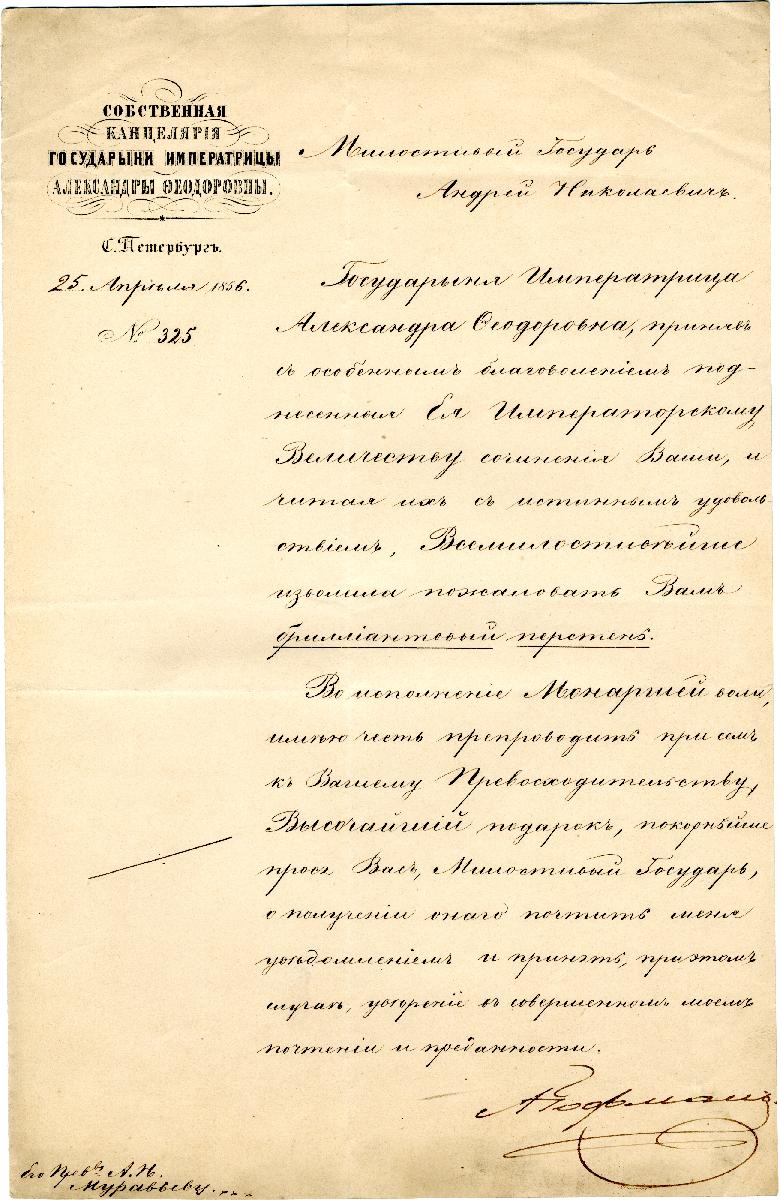 СОБСТВЕННАЯ
КАНЦЕЛЯРІЯ
ГОСУДАРЫНИ ИМПЕРАТРИЦЫ
АЛЕКСАНДРЫ ѲЕОДОРОВНЫ.
С. Петербургъ.
25. Апрѣля 1856.
№ 325
Милостивый Государь
Андрей Николаевичъ.
Государыня Императрица
Александра Ѳеодоровна, принявъ
съ особеннымъ благоволеніемъ под-
несенныя Ея Императорскому
Величеству сочиненія Ваши, и
читая ихъ съ истиннымъ удоволь-
ствіемъ, Всемилостивѣйше
изволила пожаловать Вамъ
брилліантовый перстень.
Во исполненіе Монаршей воли,
имѣю честь препроводить при семъ
къ Вашему Превосходительству,
Высочайшій подарокъ, покорнѣйше
прося Васъ, Милостивый Государь,
о полученіи онаго почтить меня
увѣдомленіемъ и принять, при этомъ
случаѣ, увѣреніе въ совершенномъ моемъ
почтеніи и преданности.
А Гофманъ
Его Прев-ву А. Н.
Муравьеву.